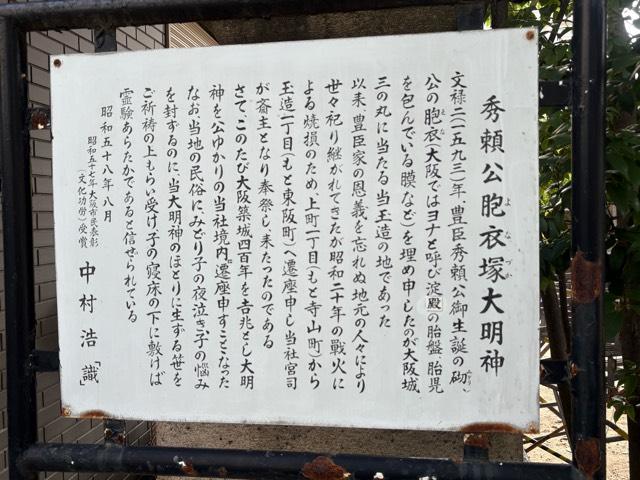 秀頼公胞衣塚大明神
よなづか
文禄二(一五九三)年、豊臣秀頼公御生誕の砌
みぎり
公の胞衣(大阪ではヨナと呼び淀殿の胎盤、胎児
を包んでいる膜など)を埋め申したのが大阪城
三の丸に当たる当玉造の地であった
以来、豊臣家の恩義を忘れぬ地元の人々により
世々祀り継がれてきたが昭和二十年の戦火に
よる焼損のため、上町一丁目(もと寺山町)から
玉造一丁目(もと東阪町)へ遷座申し当社宮司
が斎主となり奉祭し、来たったのである
さて、このたび大阪築城四百年を吉兆とし大明
神を公ゆかりの当社境内に遷座申すことなった
なお、当地の民俗に、みどり子の夜泣き、子の悩み
を封ずるのに、当大明神のほとりに生ずる笹を
ご祈祷の上もらい受け子の寝床の下に敷けば
霊験あらたかであると信ぜられている
昭和五十八年八月
昭和五十七年大阪市民表彰
(文化功労)受賞
中村浩「識」